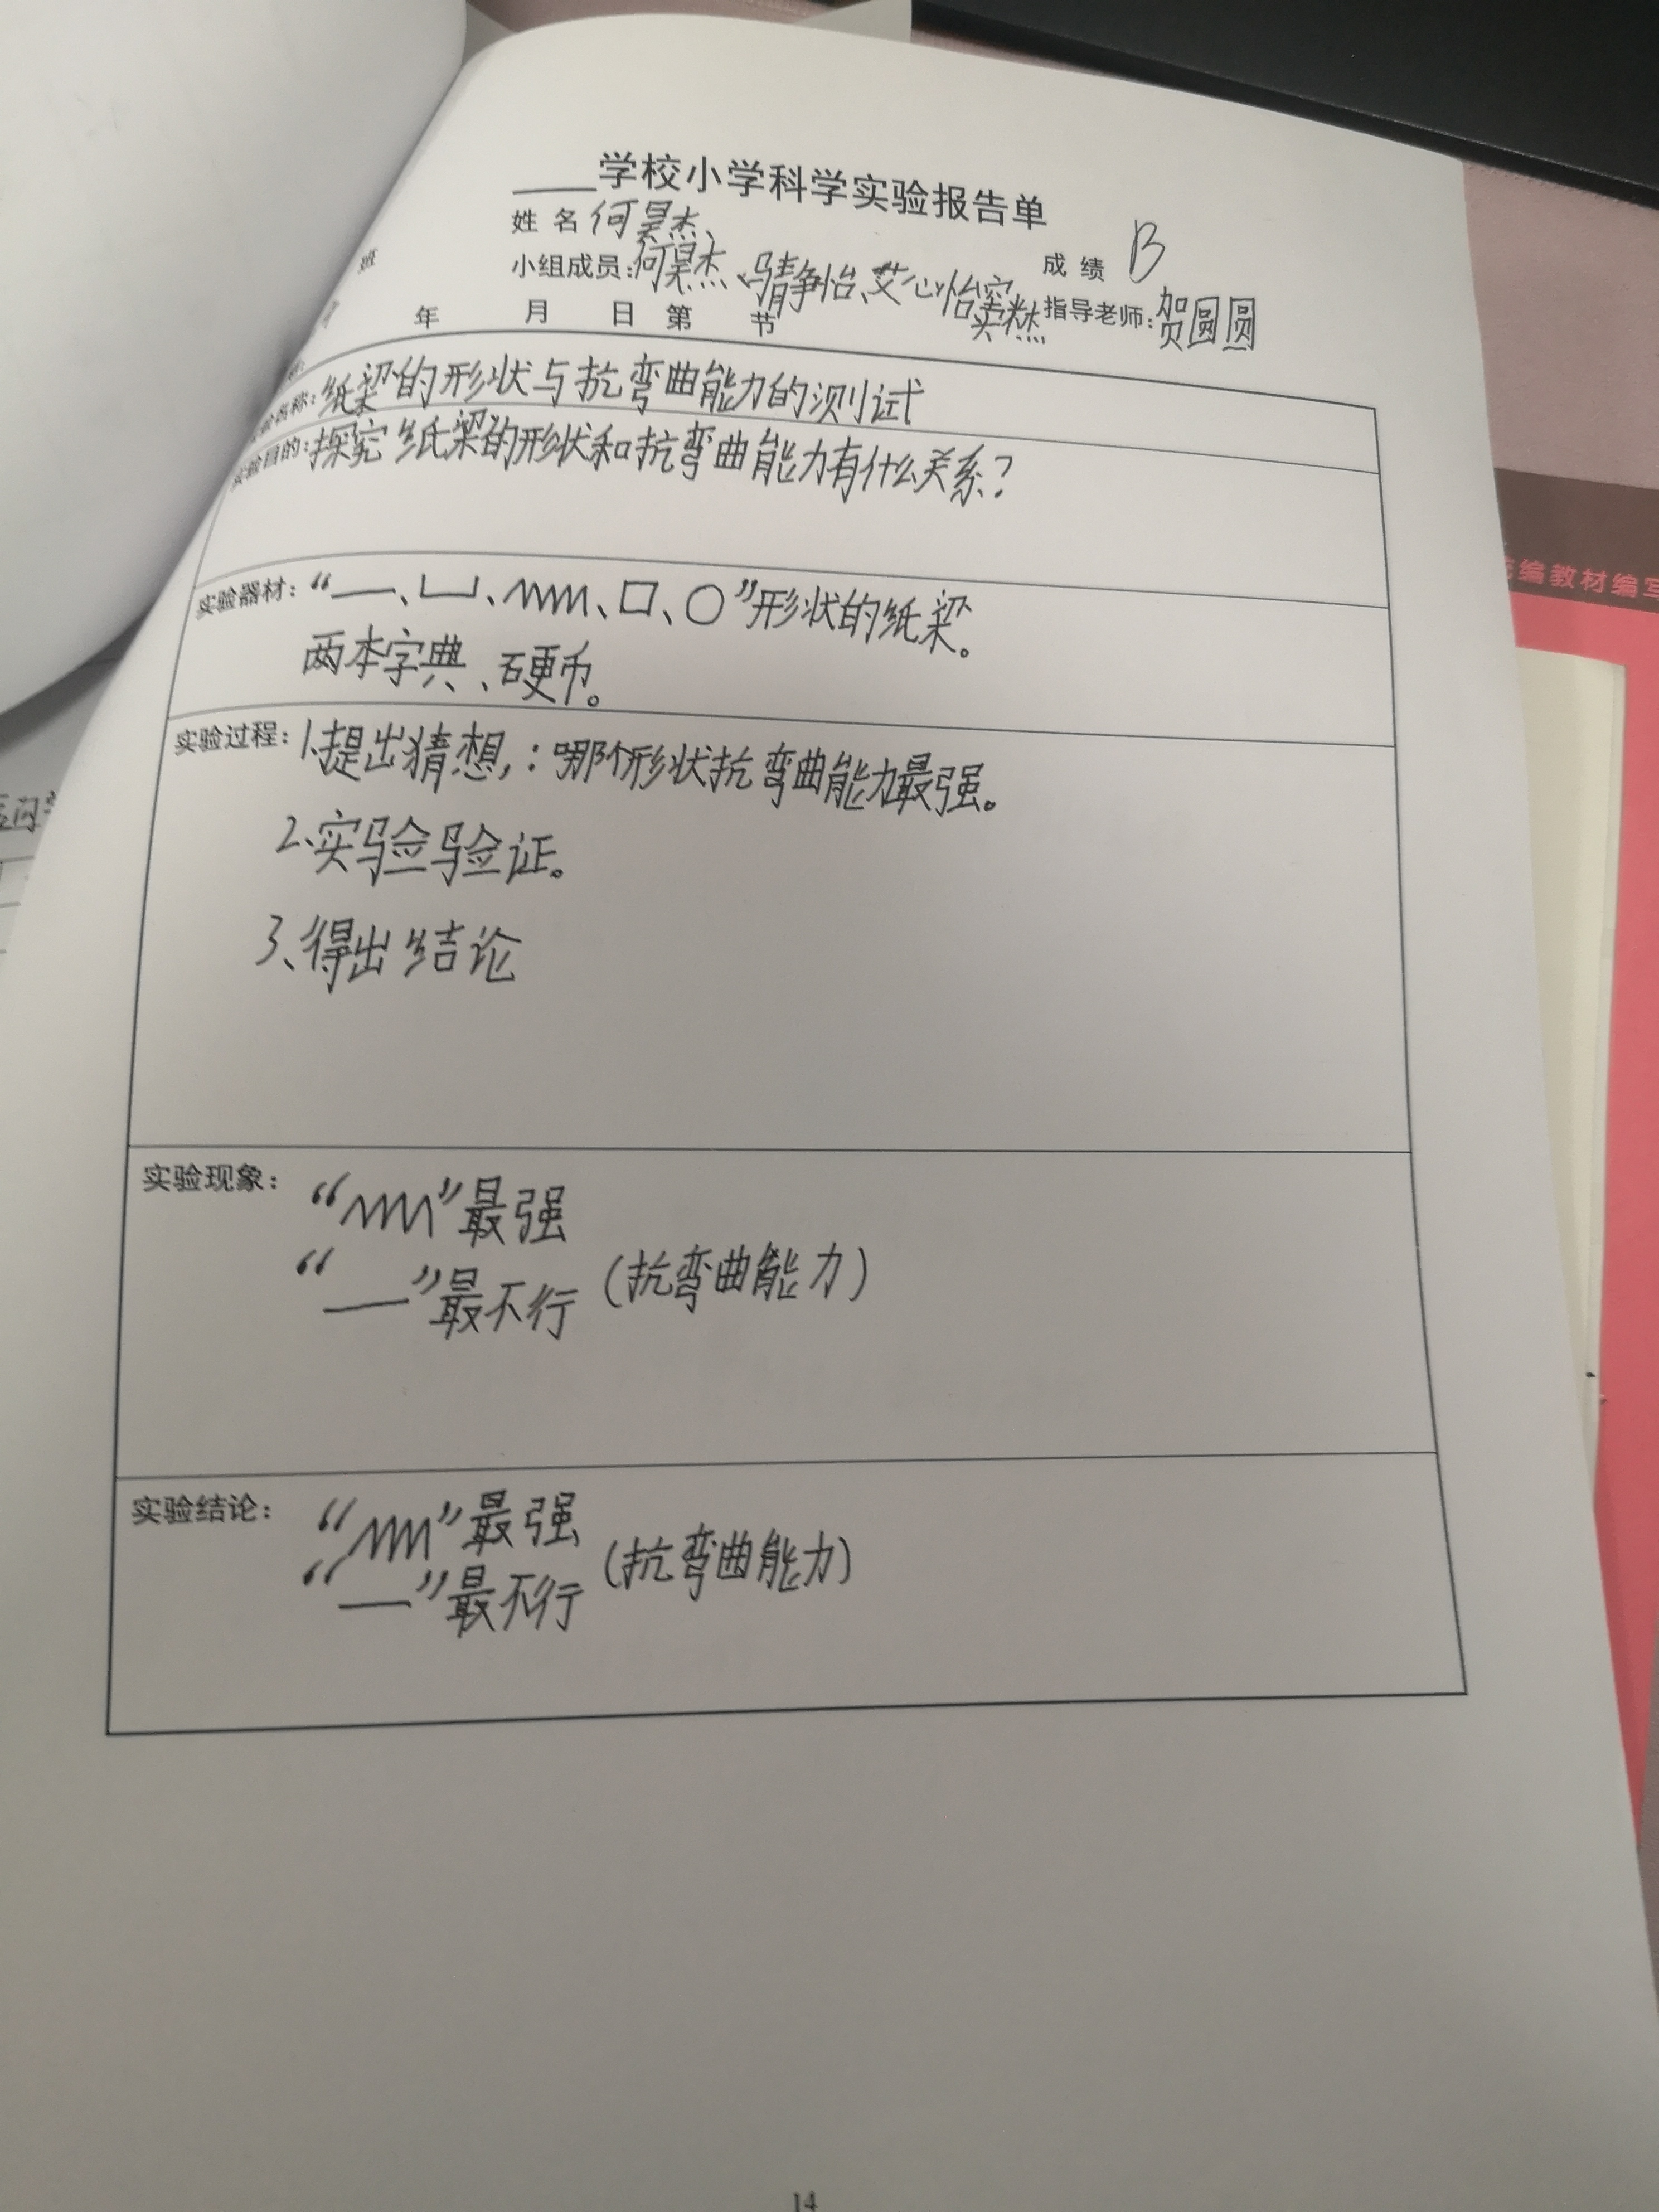 学校小学科学实验报告单
班 姓名 何昊杰、
小组成员:何昊杰、马静怡、艾心怡 成绩 B
年 月 日 第 节 指导老师:贺圆圆
验名称:纸梁的形状与抗弯曲能力的测试
实验目的:探究纸梁的形状和抗弯曲能力有什么关系?
实验器材:“—、凵、、口、○”形状的纸梁。
两本字典、硬币。
实验过程:1、提出猜想,:哪个形状抗弯曲能力最强。
2、实验验证。
3、得出结论
实验现象:“”最强
“—”最不行(抗弯曲能力)
实验结论:“”最强
“—”最不行(抗弯曲能力)
14
编教材编写